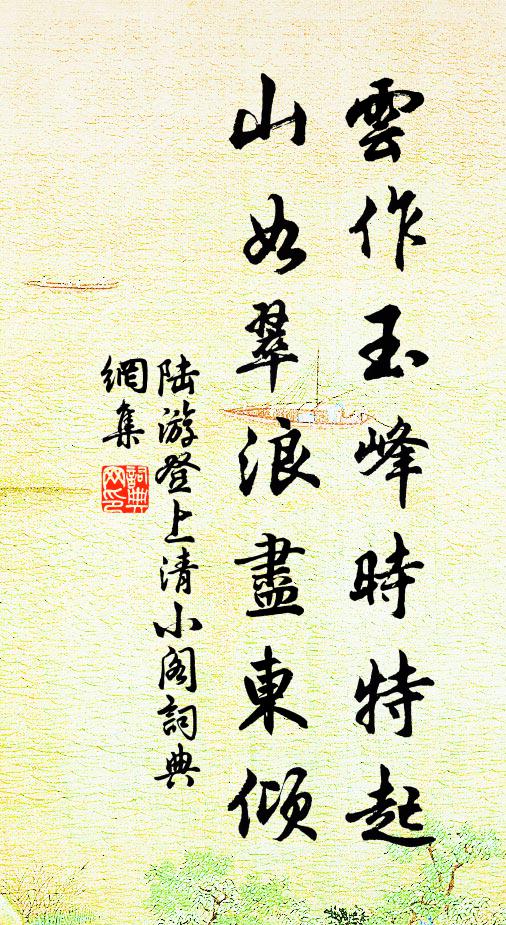 雲作玉峰時特起
山如翠浪盡東傾
陆游登上清小阁詞典
網集
詞典
网印